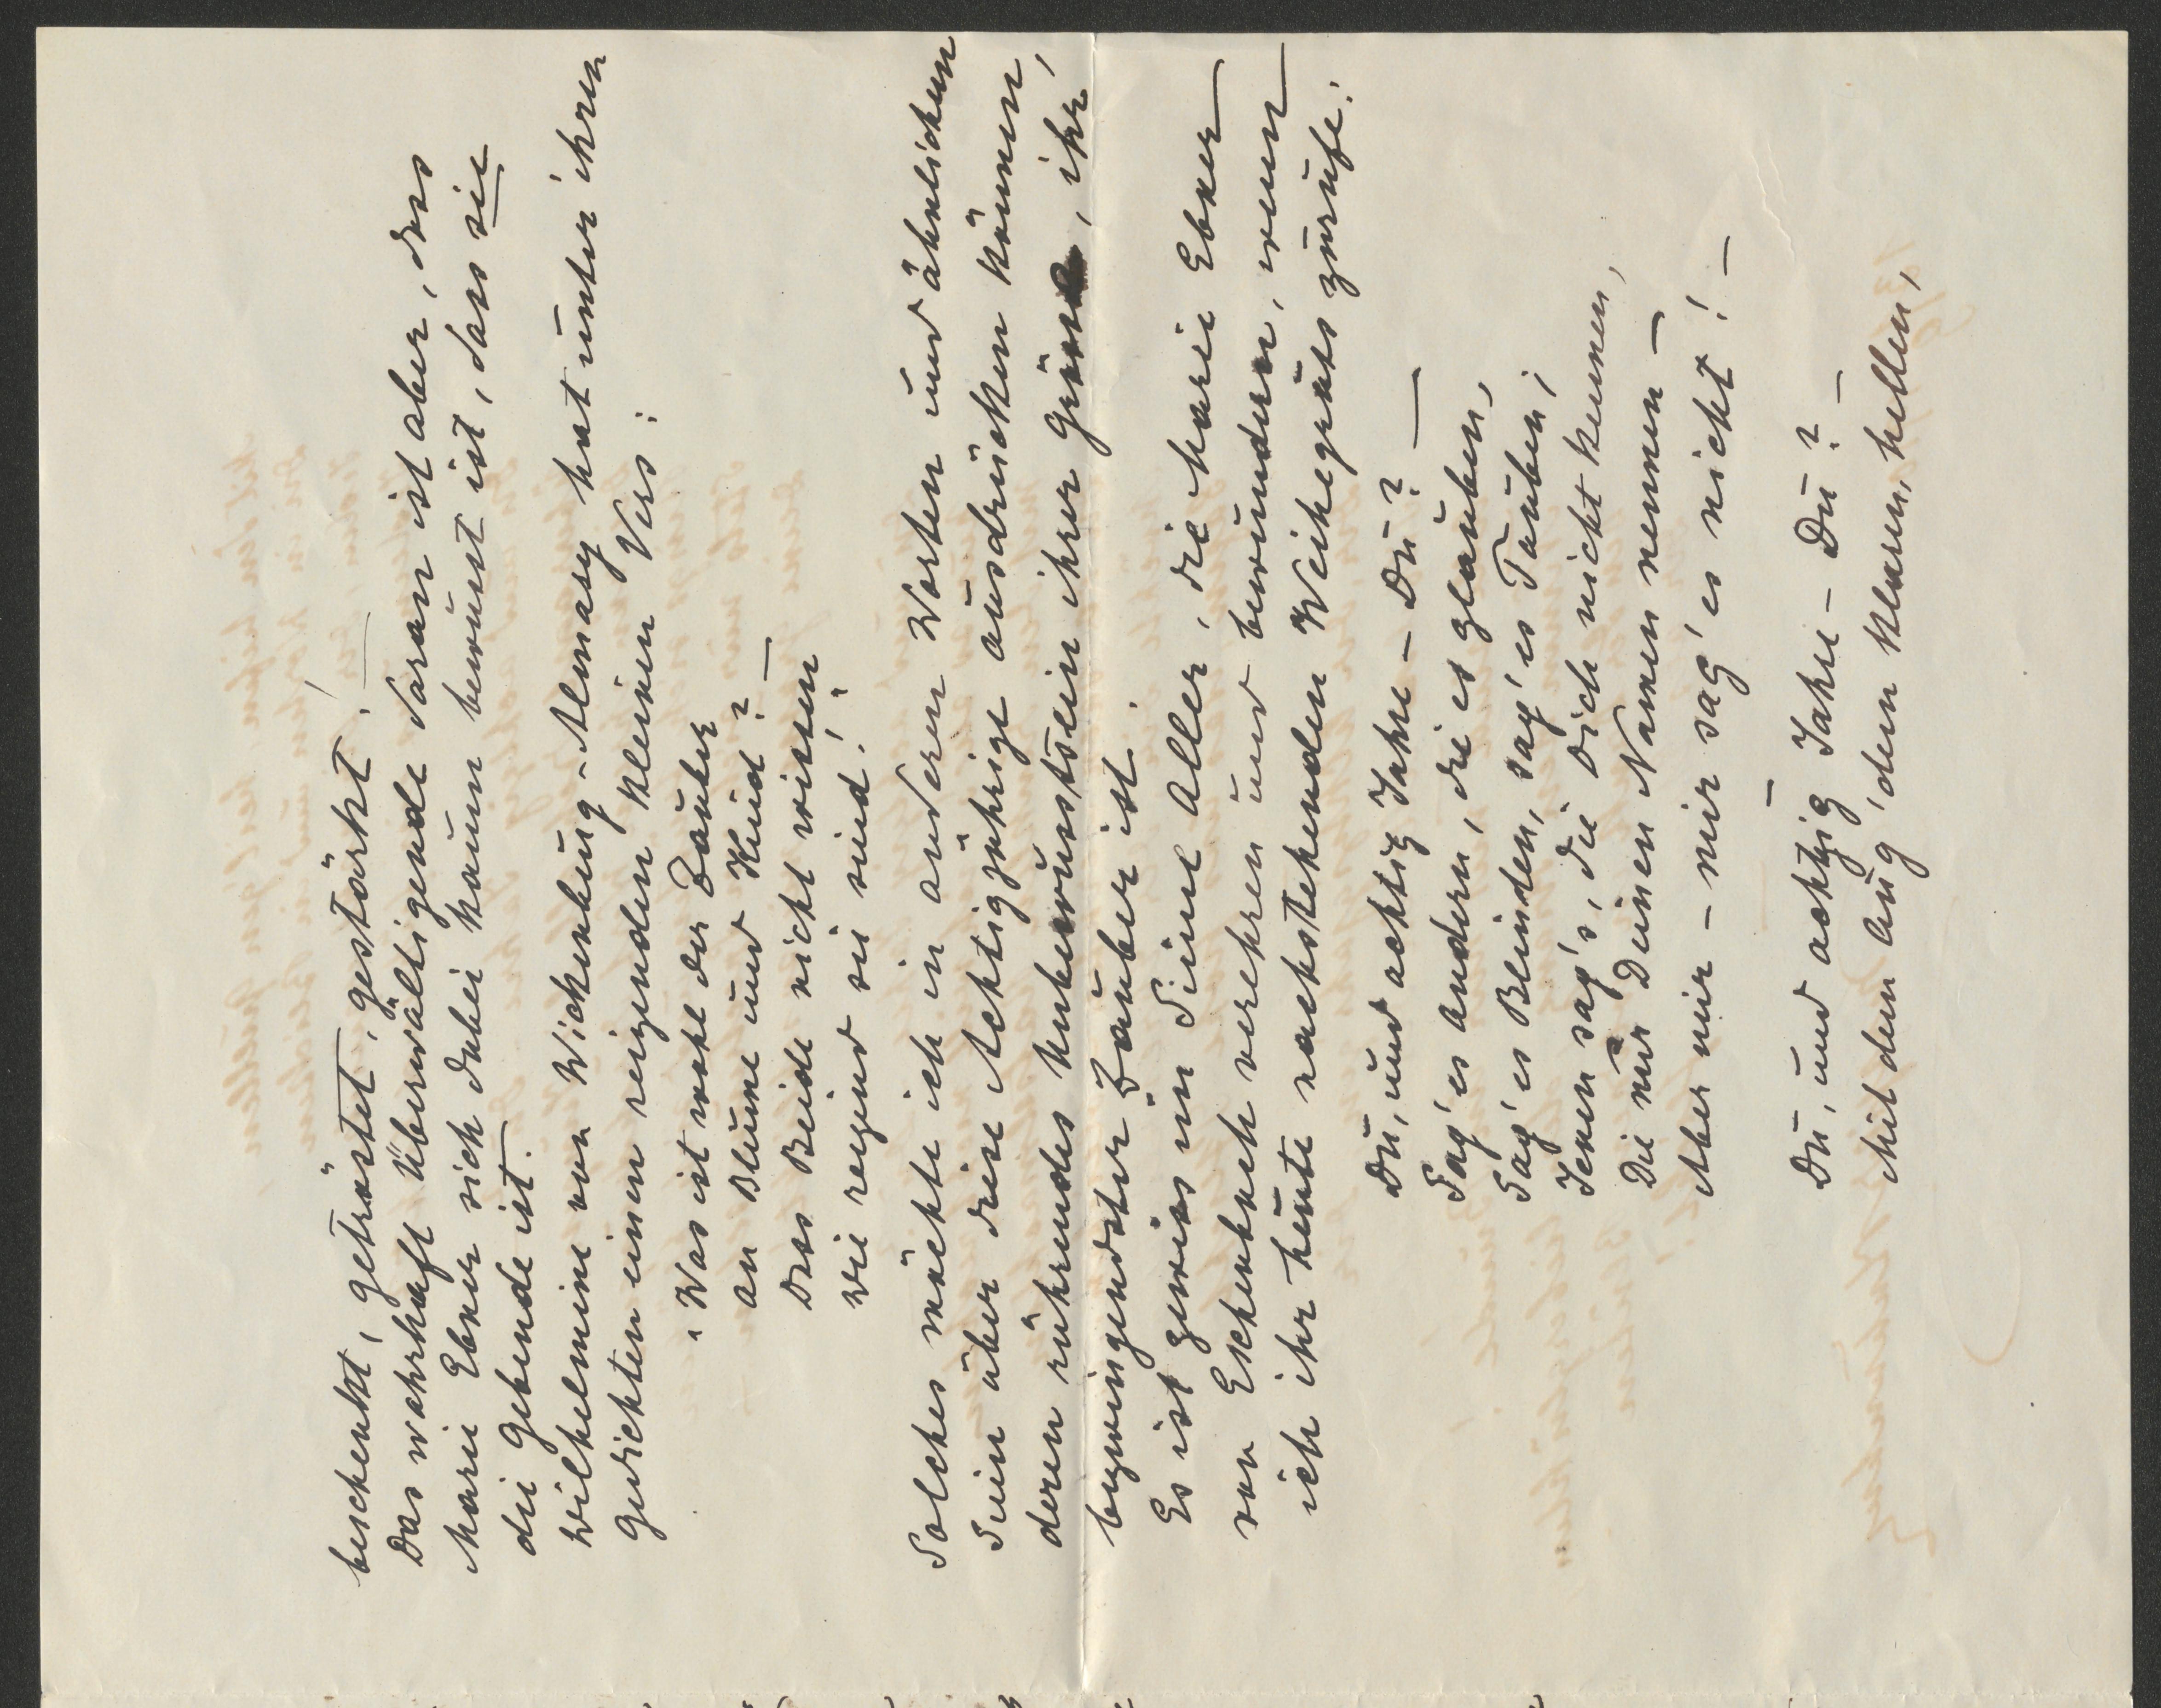 beschenkt, getröstet, gestärkt! —
Das wahrhaft Überwältigende daran ist aber, das
Marie Ebner sich dabei kaum bewusst ist, dass sie
die Gebende ist.
Wilhelmine von Wickenburg-Almasy hat unter ihren
Gedichten einen reizenden kleinen Vers:
„Was ist wohl der Zauber
an Blume und Kind? —
Das Beide nicht wissen
wie reizend sie sind!"
Solches möchte ich in anderen Worten und ähnlichem
Sinn über diese Achtigjährige ausdrücken können,
deren rührendes Unbewusstsein ihrer Grösse, ihr
bezwingendster Zauber ist.
Es ist gewiss im Sinne Aller, die Marie Ebner
von Eschenbach verehren und bewundern, wenn
ich ihr heute nachstehenden Weihegruss zurufe:
Du, und achtzig Jahre – Du? —
Sag' es andern, die es glauben,
Sag' es Blinden, sag' es Tauben;
Jenen sag's, die Dich nicht kennen,
Die nur Deinen Namen nennen –
Aber mir – mir sag' es nicht! –
—
Du, und achtzig Jahre – Du? –
Mit dem Aug' dem klaren, hellen,